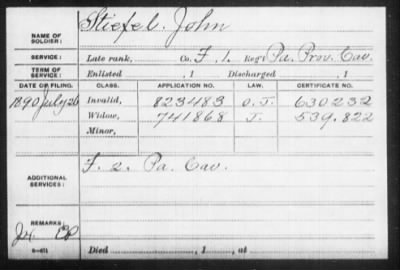 NAME OF SOLDIER: Stiefel, John
SERVICE: Late rank, Co. F, 1. Reg't Pa. Prov. Cav.
TERM OF SERVICE: Enlisted , 1 Discharged , 1
DATE OF FILING. CLASS. APPLICATION NO. LAW. CERTIFICATE NO.
1890 July 26 Invalid, 823483 O.J. 630232
Widow, 741868 J. 539.822
Minor,
ADDITIONAL SERVICES: F. 2. Pa. Cav.
REMARKS:
Died , 1 , at